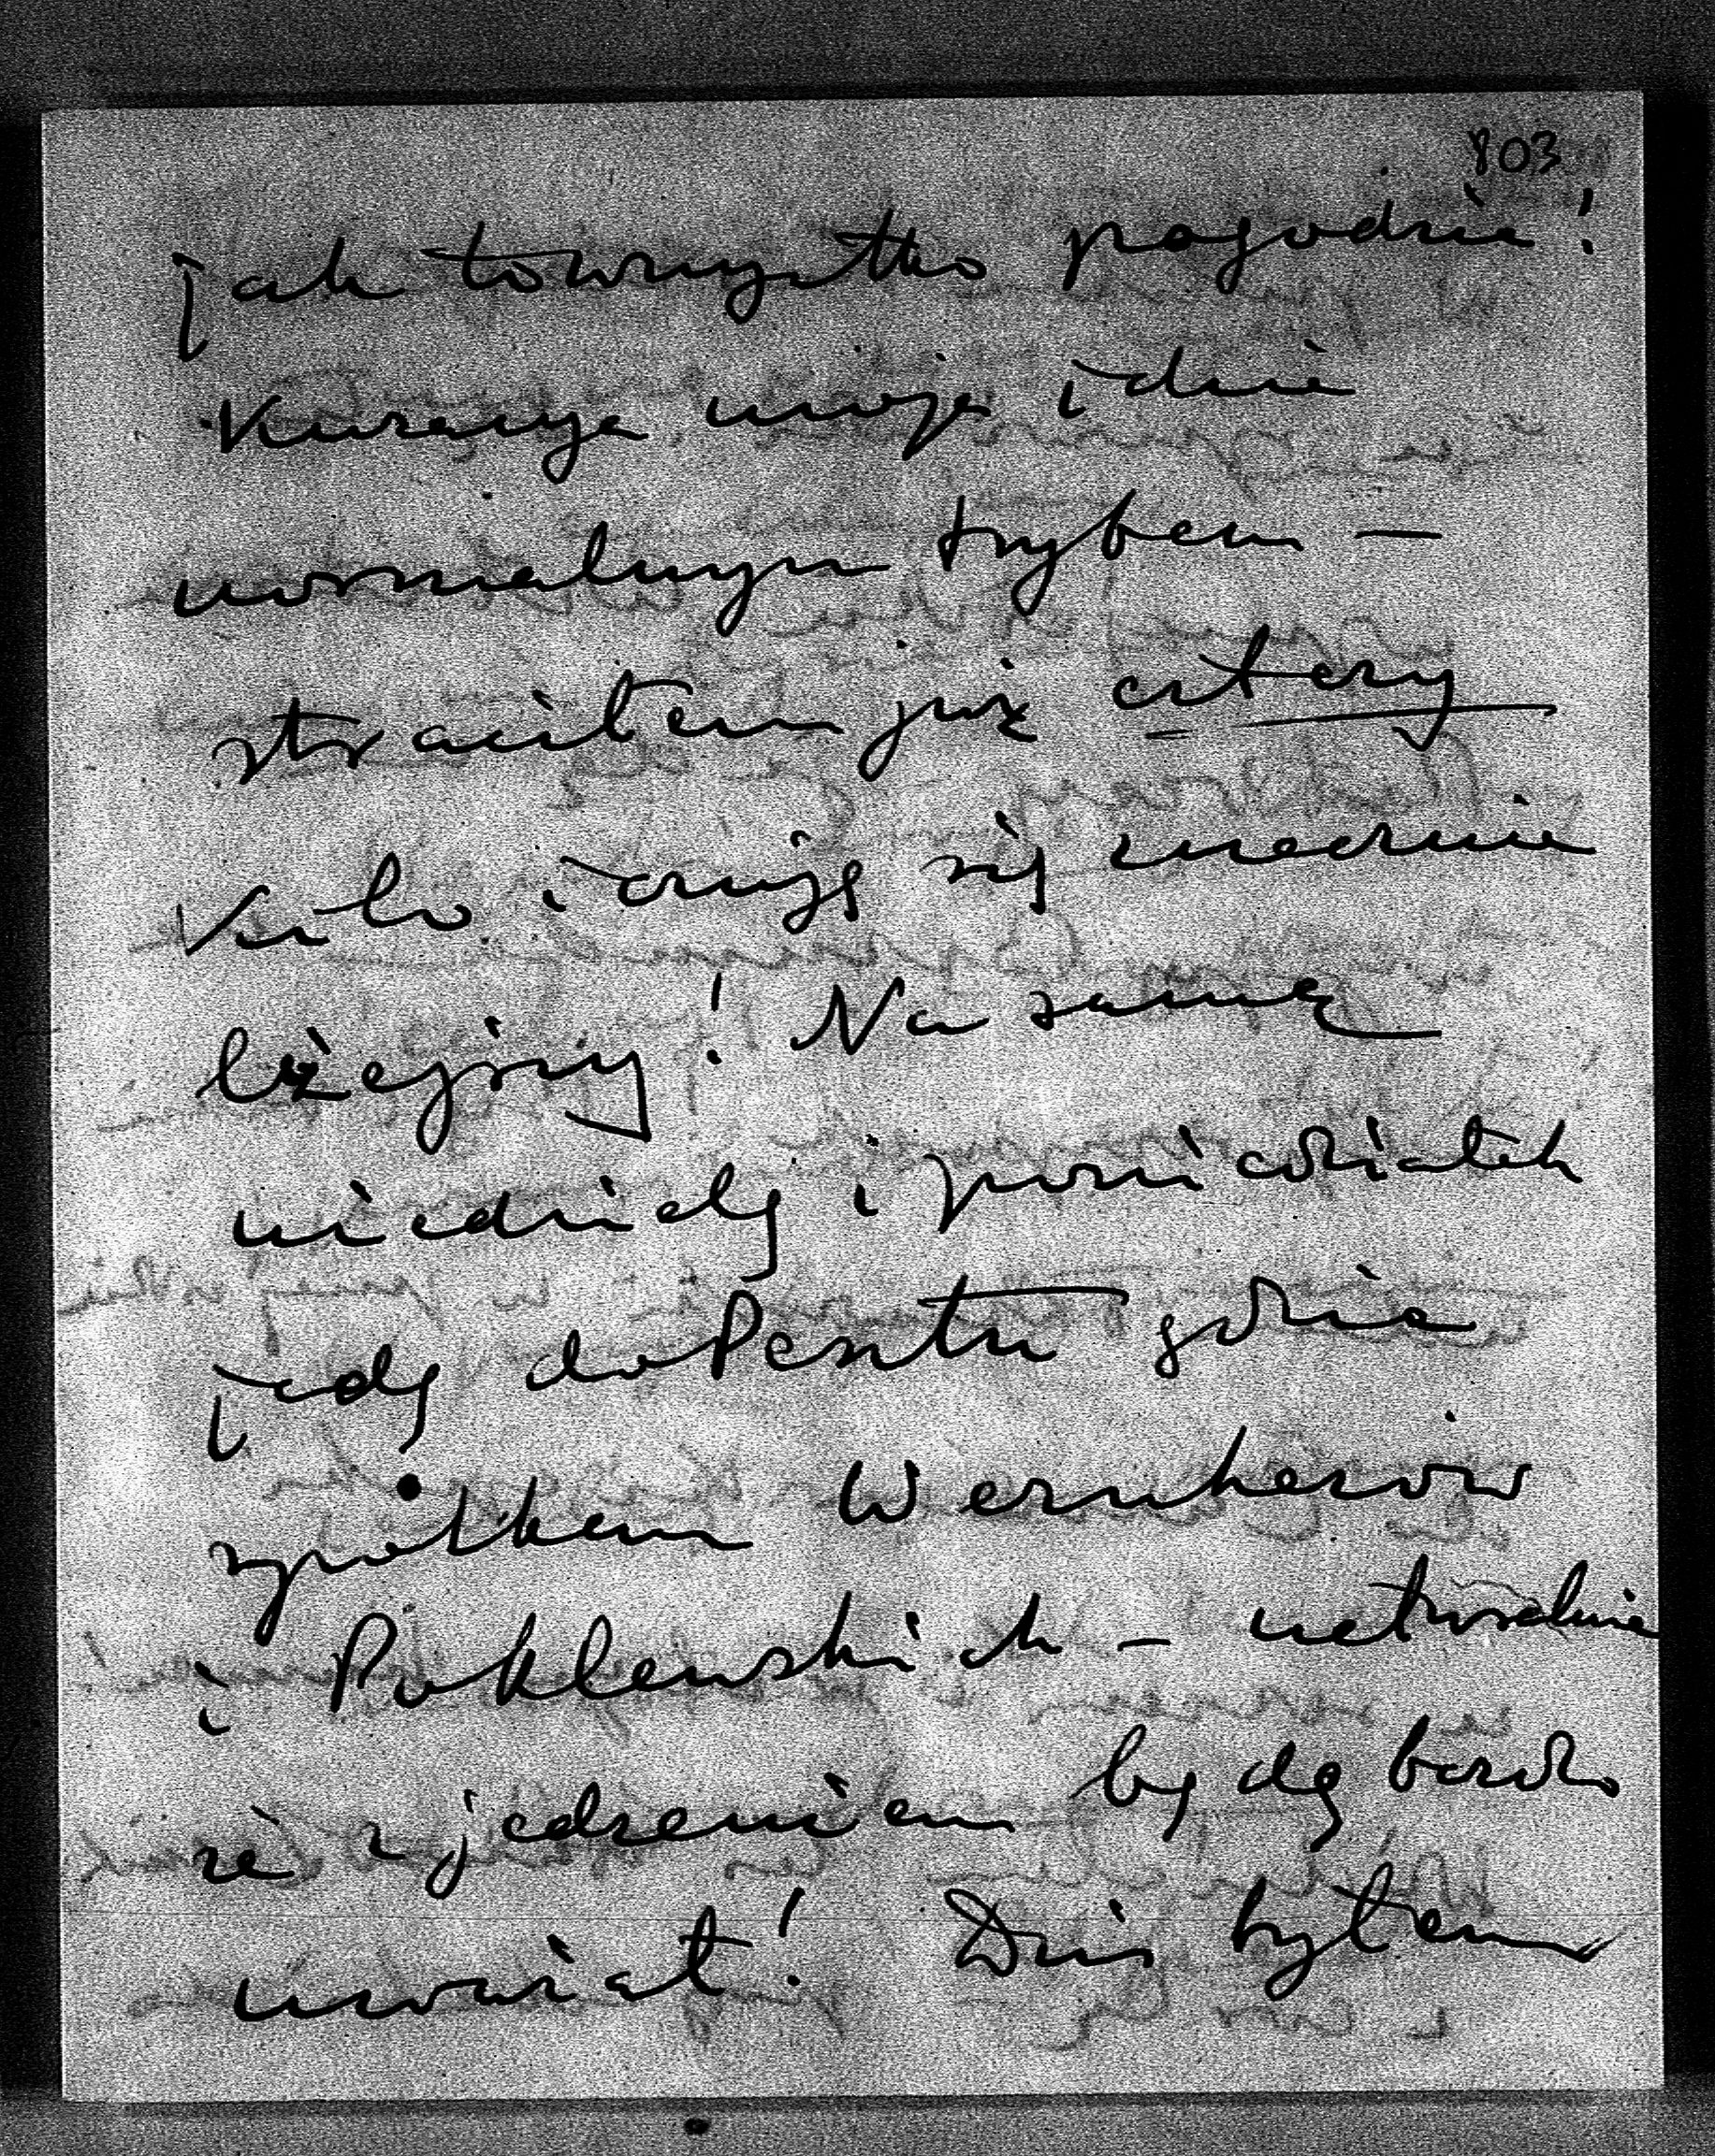 803
jak to wszystko pogodzić!
Kuracya moja idzie
normalnym trybem —
straciłem już cztery
kilo i czuję się znacznie
lżejszy! Na samą
niedzielę i poniedziałek
jadę do Pesztu gdzie
spotkam Wernherów
i Poklewskich — naturalnie
że z jedzeniem będę bardzo
uważał! Dziś byłem